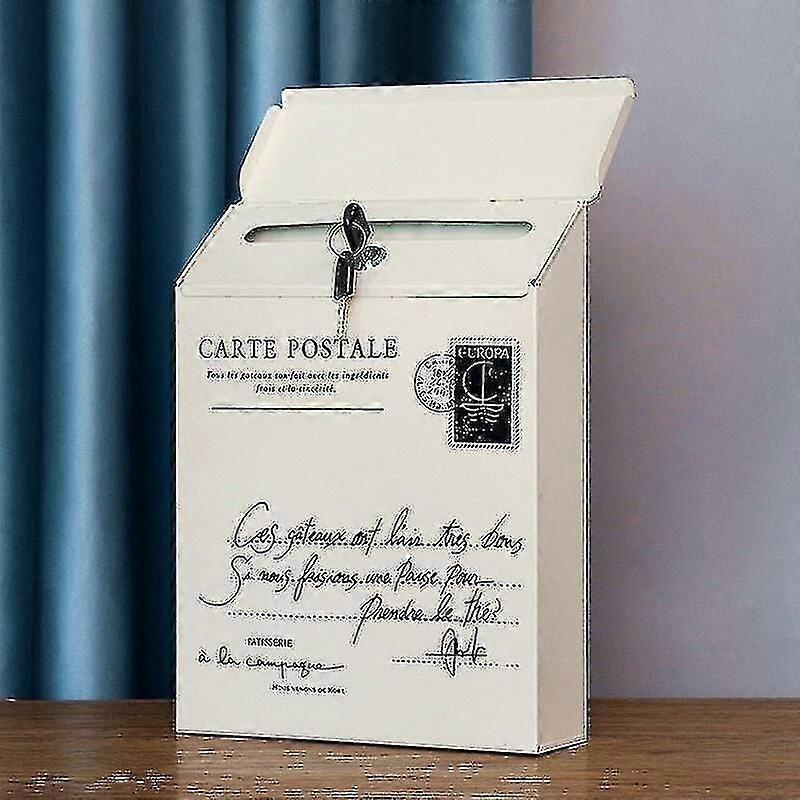 CARTE POSTALE
EUROPA
Tous les gateaux son-fait avec les ingrédients
frais et la sincérité.
Ces gâteaux ont l'air très bons
Si nous faisions une Pause Pour
Prendre le thé?
PATISSERIE
à la campagne
NOUS VENONS DE KOBE